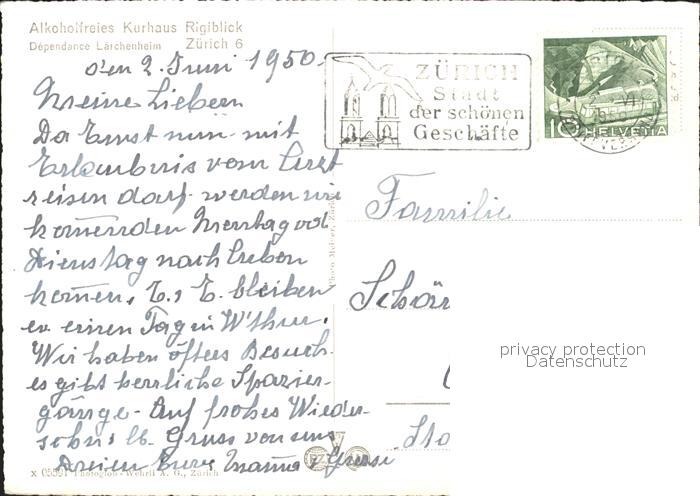 Alkoholfreies Kurhaus Rigiblick
Dépendance Lärchenheim Zürich 6
den 2. Juni 1950.
Meine Lieben
Da Ernst nun mit
Erlaubnis vom Arzt
reisen darf werden wir
kommenden Montag od
Dienstag nach
kommen. E. & E. bleiben
ev einen Tag in W'thur.
Wir haben öfters Besuch.
es gibt herrliche Spazier-
gänge. Auf frohes Wieder-
sehn & lb. Gruss von uns
Dreien Eure Mamma
x 05591 Photoglob-Wehrli A. G., Zürich
ZÜRICH
Stadt
der schönen
Geschäfte
10 HELVETIA
Familie
Schär
privacy protection
Datenschutz